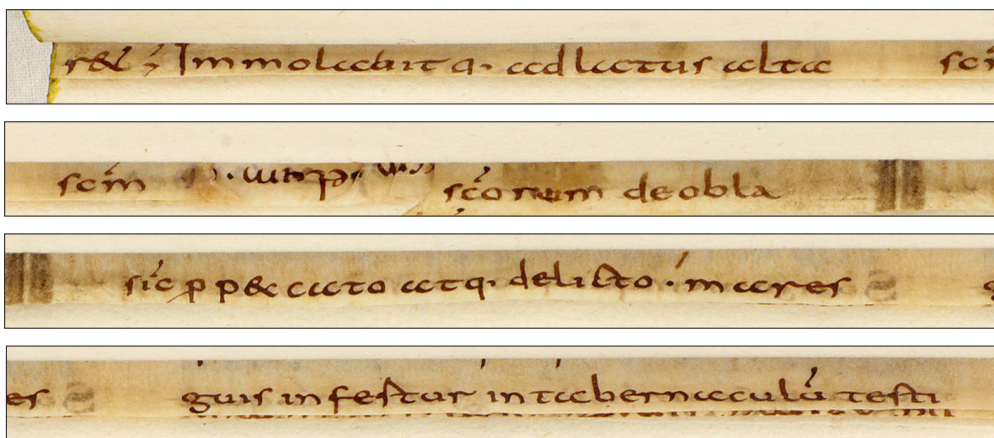 Immolabitq· ad latus alta sc̄
scm̄ sc̄orum de obla
sic p peccato atq· delicto · mares
es guis infertur in tabernaculū testi